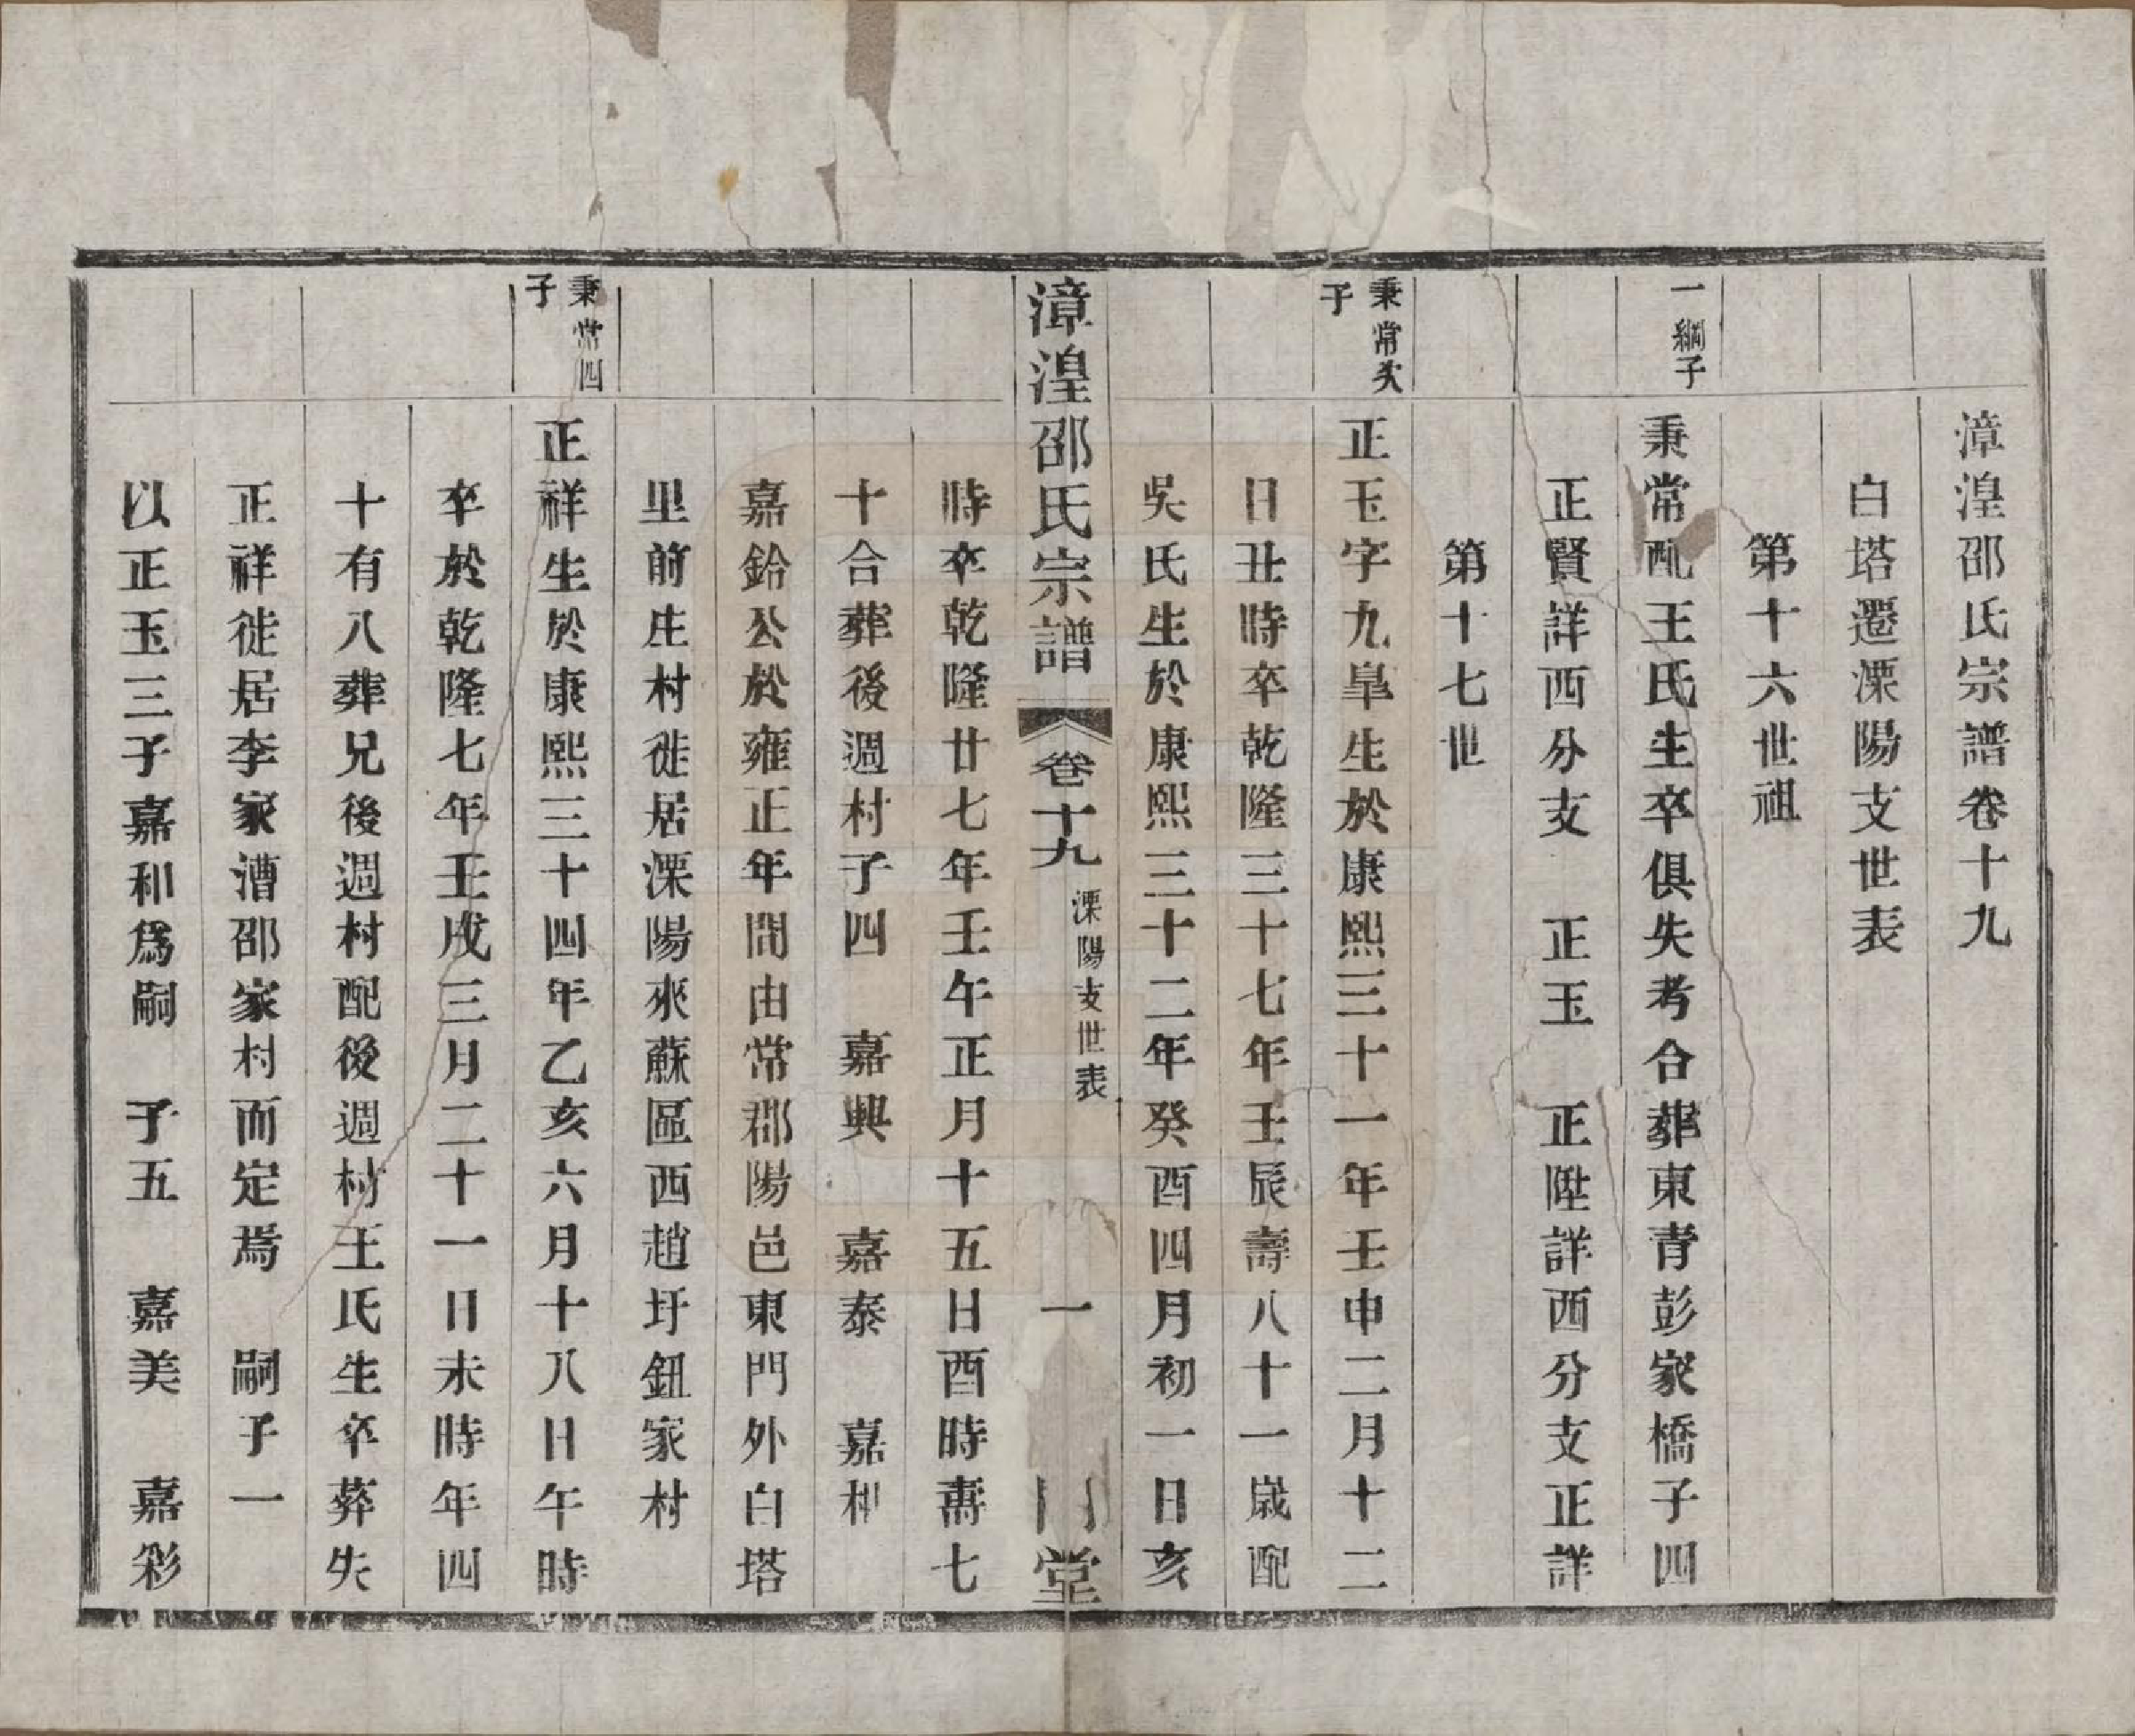 漳湟邵氏宗譜卷十九
白塔遷溧陽支世表
第十六世祖
一綱子
秉常配王氏生卒俱失考合葬東青彭家橋子四
正賢詳西分支　正玉　正陞詳西分支正詳
第十七世
秉常次子
正玉字九臯生於康熙三十一年壬申二月十二
日丑時卒乾隆三十七年壬辰壽八十一歲配
吳氏生於康熙三十二年癸酉四月初一日亥
漳湟邵氏宗譜　卷十九　溧陽支世表　一　堂
時卒乾隆廿七年壬午正月十五日酉時壽七
十合葬後週村子四　嘉興　嘉泰　嘉和
嘉鈴公於雍正年間由常郡陽邑東門外白塔
里前庄村徙居溧陽來蘇區西趙圩鈕家村
秉常四子
正祥生於康熙三十四年乙亥六月十八日午時
卒於乾隆七年壬戌三月二十一日未時年四
十有八葬兄後週村配後週村王氏生卒葬失
正祥徙居李家漕邵家村而定焉　嗣子一
以正玉三子嘉和爲嗣　子五　嘉美　嘉彩